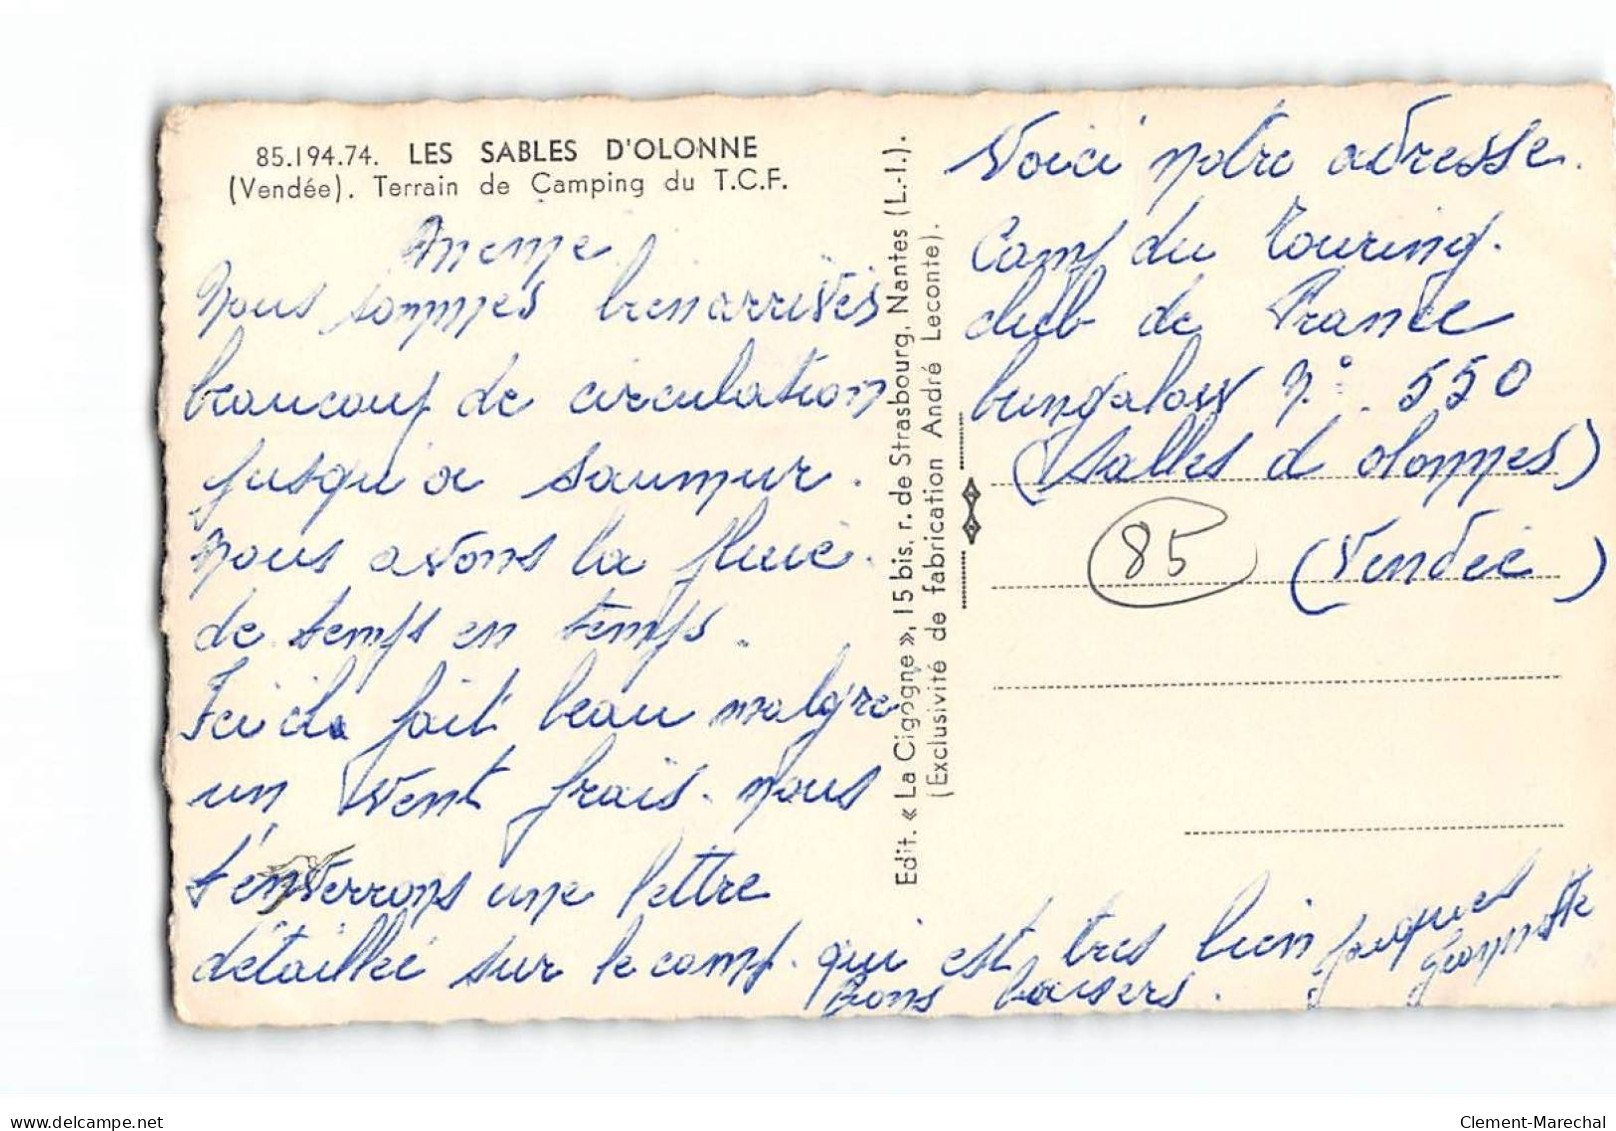 85.194.74. LES SABLES D'OLONNE
(Vendée). Terrain de Camping du T.C.F.
Meme
Nous sommes bien arrivés
beaucoup de circulation
jusqu'a Saumur.
nous avons la pluie.
de temps en temps.
Ici il fait beau malgre
un vent frais. nous
t'enverrons une lettre
détaillée sur le camp. qui est tres bien
Bons baisers.
Jacques
Edit. « La Cigogne », 15 bis, r. de Strasbourg, Nantes (L.-I.).
(Exclusivité de fabrication André Leconte).
Voici notre adresse.
Camp du Touring.
club de France
bungalow N° 550
(Salles d olonnes)
85 (Vendée)
delcampe.net
Clement-Marechal